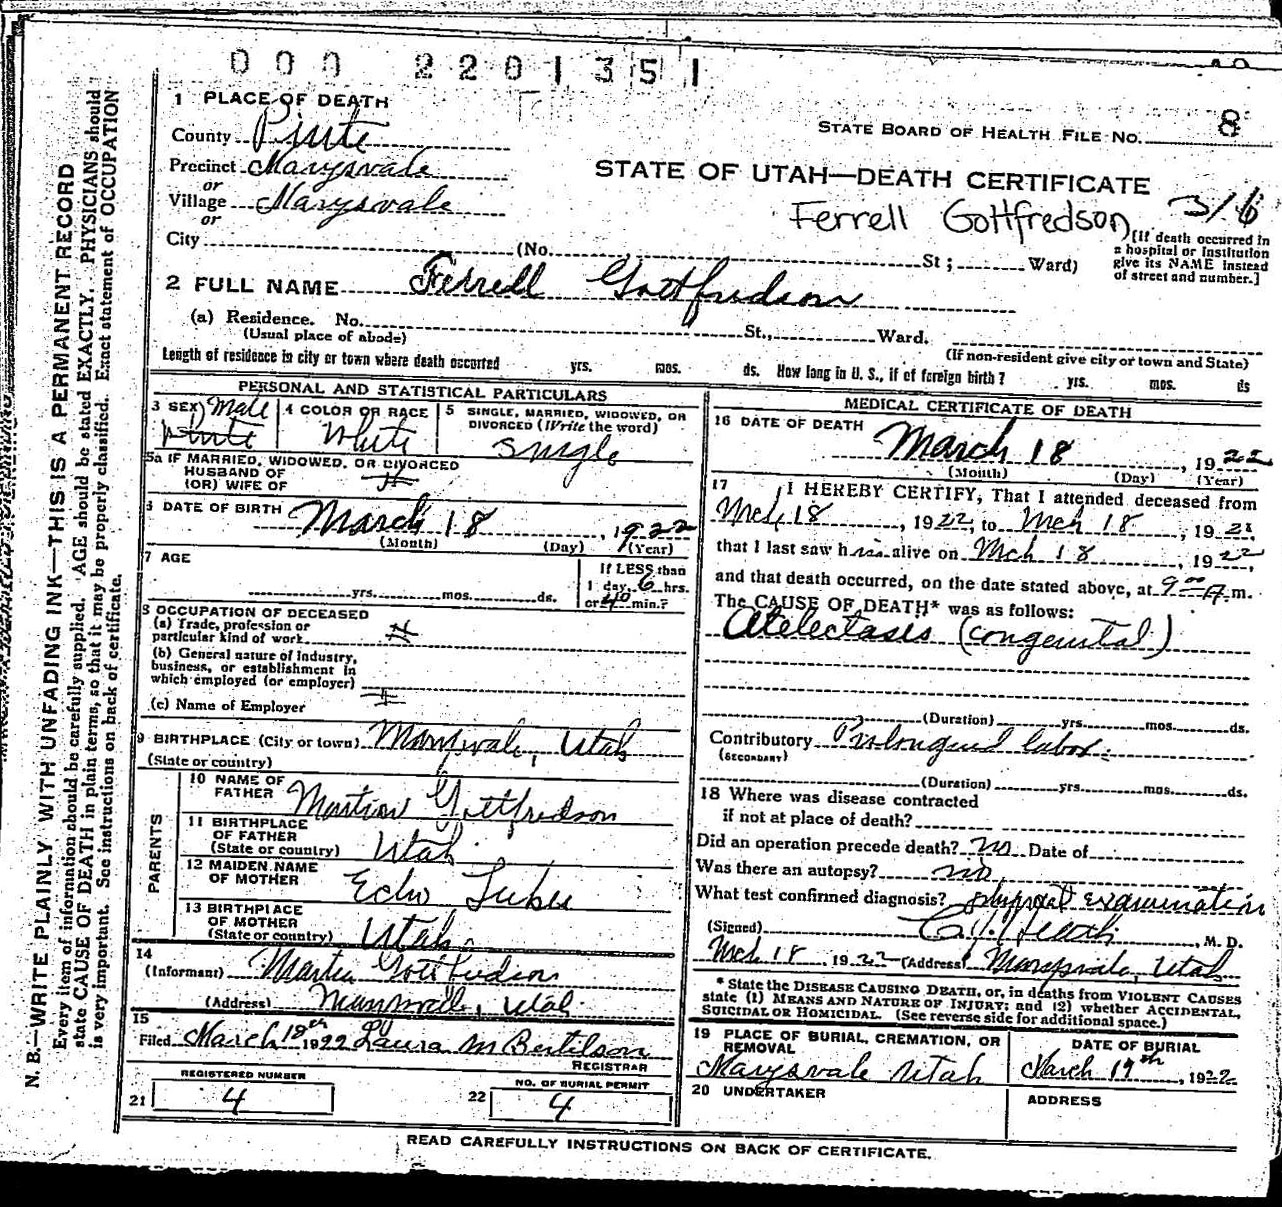 000 2201351
1 PLACE OF DEATH
County Piute
STATE BOARD OF HEALTH FILE NO. 8
Precinct Marysvale
or
STATE OF UTAH—DEATH CERTIFICATE
Village Marysvale
or
Ferrell Gottfredson 316
City (No. St ; Ward)
[If death occurred in
a hospital or institution
give its NAME instead
of street and number.]
2 FULL NAME Ferrell Gottfredson
(a) Residence. No. St., Ward.
(Usual place of abode)
(If non-resident give city or town and State)
Length of residence in city or town where death occurred yrs. mos. ds. How long in U. S., if of foreign birth? yrs. mos. ds
PERSONAL AND STATISTICAL PARTICULARS
3 SEX Male
White
4 COLOR OR RACE
White
5 SINGLE, MARRIED, WIDOWED, OR
DIVORCED (Write the word)
Single
5a IF MARRIED, WIDOWED, OR DIVORCED
HUSBAND OF
(OR) WIFE OF
6 DATE OF BIRTH March 18, 1922
(Month) (Day) (Year)
7 AGE
yrs. mos. ds.
If LESS than
1 day 6 hrs.
or 40 min.?
8 OCCUPATION OF DECEASED
(a) Trade, profession or
particular kind of work
(b) General nature of industry,
business, or establishment in
which employed (or employer)
(c) Name of Employer
9 BIRTHPLACE (City or town) Marysvale, Utah
(State or country)
PARENTS
10 NAME OF
FATHER Martin Gottfredson
11 BIRTHPLACE
OF FATHER
(State or country) Utah
12 MAIDEN NAME
OF MOTHER Echo
13 BIRTHPLACE
OF MOTHER
(State or country) Utah
14
(Informant) Martin Gottfredson
(Address) Marysvale, Utah
15
Filed March 18th 1922 Laura M Bertilson
REGISTRAR
REGISTERED NUMBER
21 4
NO. OF BURIAL PERMIT
22 4
MEDICAL CERTIFICATE OF DEATH
16 DATE OF DEATH
March 18, 1922
(Month) (Day) (Year)
17 I HEREBY CERTIFY, That I attended deceased from
Mch 18, 1922, to Mch 18, 1922
that I last saw him alive on Mch 18, 1922,
and that death occurred, on the date stated above, at 9 00 A m.
The CAUSE OF DEATH* was as follows:
Atelectasis (congenital)
(Duration) yrs. mos. ds.
Contributory Prolonged labor.
(SECONDARY)
(Duration) yrs. mos. ds.
18 Where was disease contracted
if not at place of death?
Did an operation precede death? no Date of
Was there an autopsy? no
What test confirmed diagnosis? physical examination
(Signed) , M. D.
Mch 18 1922 (Address) Marysvale, Utah
* State the DISEASE CAUSING DEATH, or, in deaths from VIOLENT CAUSES
state (1) MEANS AND NATURE OF INJURY; and (2) whether ACCIDENTAL,
SUICIDAL OR HOMICIDAL. (See reverse side for additional space.)
19 PLACE OF BURIAL, CREMATION, OR
REMOVAL
Marysvale Utah
DATE OF BURIAL
March 19th, 1922
20 UNDERTAKER
ADDRESS
READ CAREFULLY INSTRUCTIONS ON BACK OF CERTIFICATE.
N. B.—WRITE PLAINLY WITH UNFADING INK—THIS IS A PERMANENT RECORD
Every item of information should be carefully supplied. AGE should be stated EXACTLY. PHYSICIANS should
state CAUSE OF DEATH in plain terms, so that it may be properly classified. Exact statement of OCCUPATION
is very important. See instructions on back of certificate.